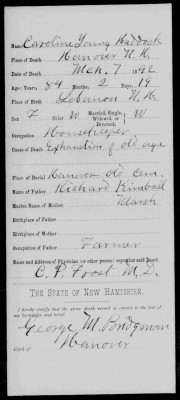 Name, Caroline Young Haddock
Place of Death Hanover N.H.
Date of Death Mch. 7 1892
Age: Years, 84 Months, 2 Days, 19
Place of Birth Lebanon N.H.
Sex F Color W Married, Single, Widowed, or Divorced, W
Occupation Housekeeper
Cause of Death Exhaustion of old age
Place of Burial Hanover old cem.
Name of Father Richard Kimball
Maiden Name of Mother, Marsh
Birthplace of Father
Birthplace of Mother
Occupation of Father Farmer
Name and Address of Physician (or other person) reporting said Death
C. P. Frost M.D.
THE STATE OF NEW HAMPSHIRE.
I hereby certify that the above death record is correct to the best of
my knowledge and belief.
George M. Bridgman
Clerk of Hanover